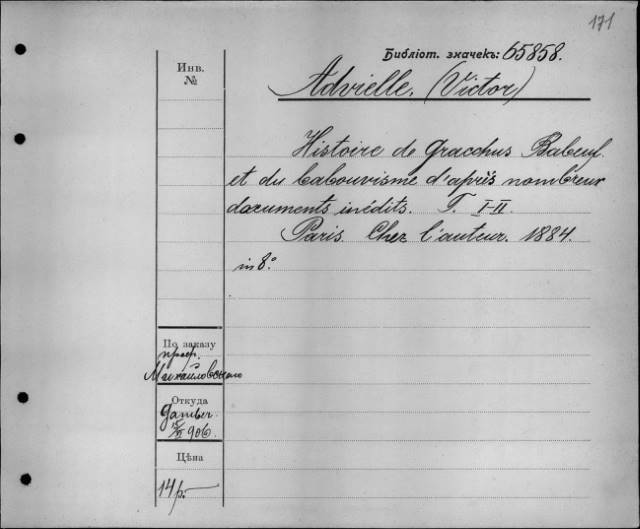 171
Библіот. значекъ: 65858.
Инв.
№
Advielle, (Victor)
Histoire de Gracchus Babeuf
et du babouvisme d'après nombreux
documents inédits. T. I-II.
Paris. Chez l'auteur. 1884.
in 8°
По заказу
проф.
Михайловскаго
Откуда
Gamber.
906.
Цѣна
14 р.